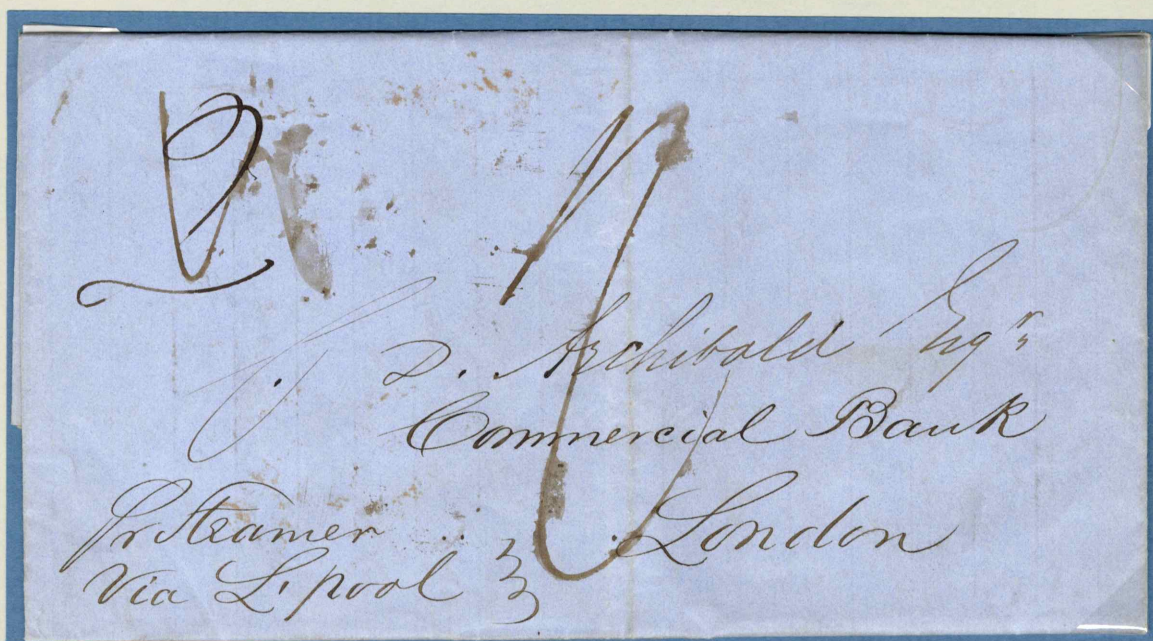 J. D. Archibald Esqr
Commercial Bank
London
Pr Steamer
Via L'pool